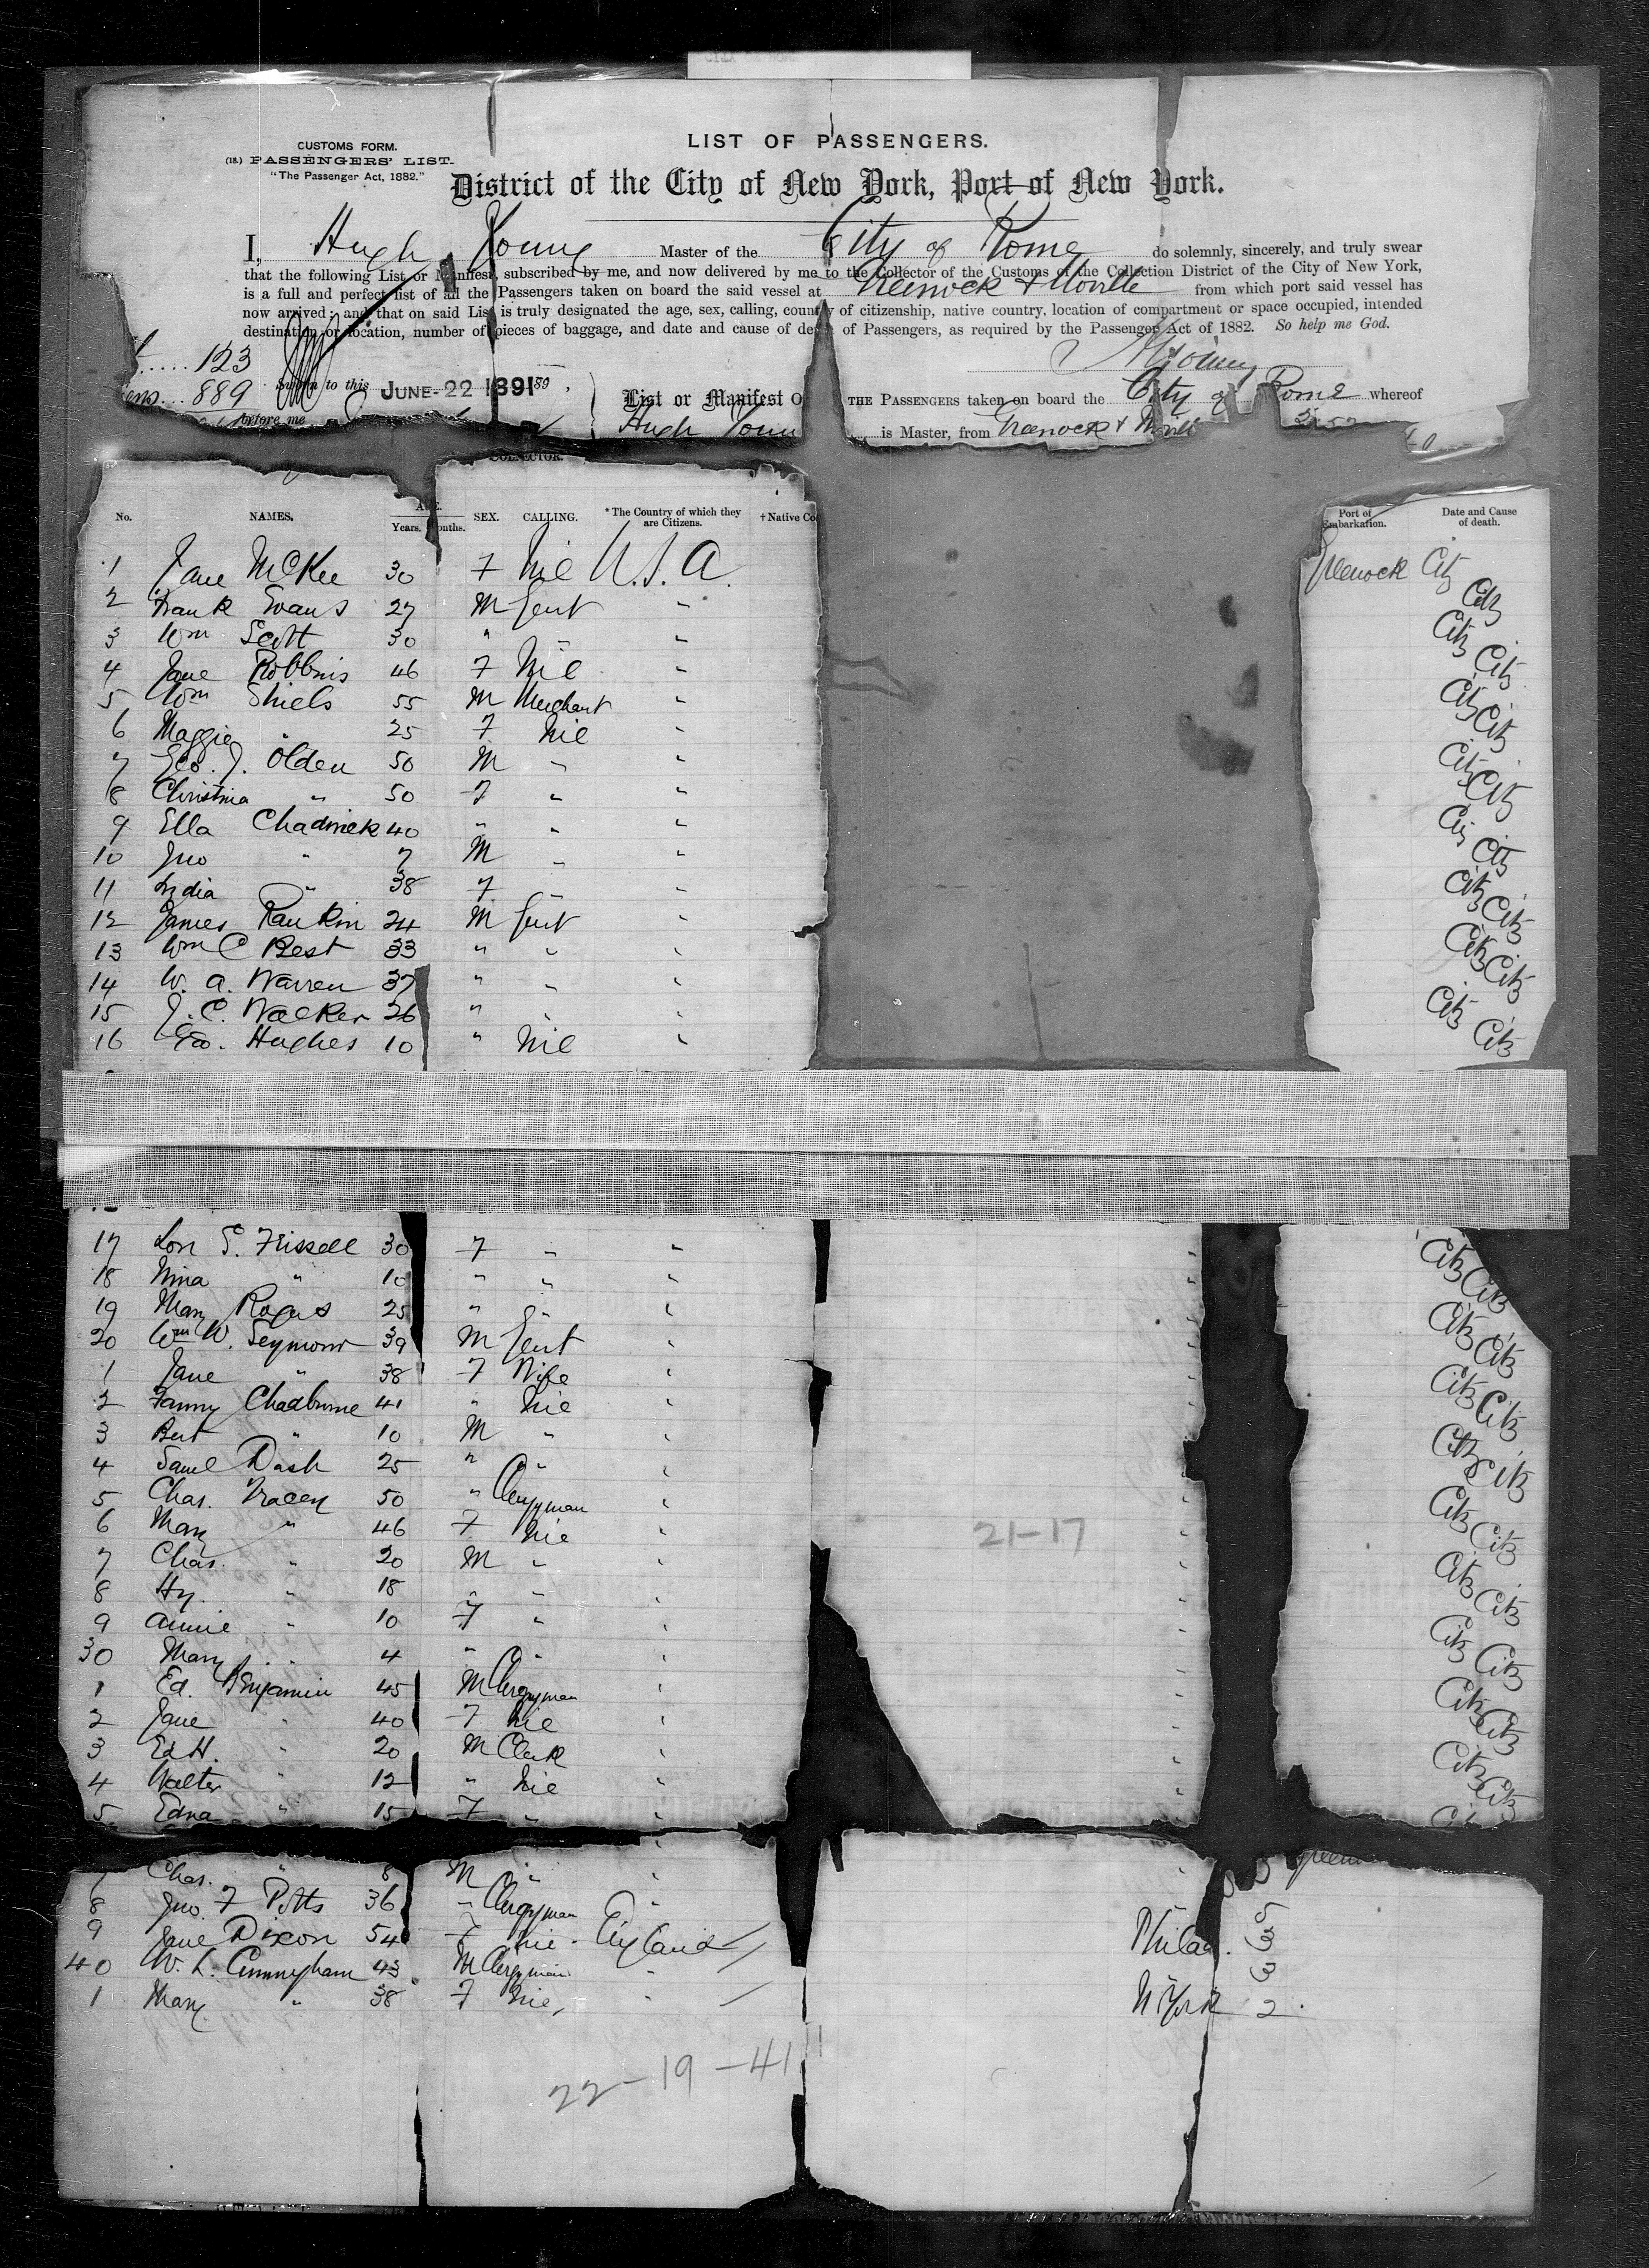 LIST OF PASSENGERS.
CUSTOMS FORM.
(18.) PASSENGERS' LIST.
"The Passenger Act, 1882."
District of the City of New York, Port of New York.
I, Hugh Young Master of the City of Rome do solemnly, sincerely, and truly swear
that the following List or Manifest, subscribed by me, and now delivered by me to the Collector of the Customs of the Collection District of the City of New York,
is a full and perfect list of all the Passengers taken on board the said vessel at Greenock & Moville from which port said vessel has
now arrived; and that on said List is truly designated the age, sex, calling, country of citizenship, native country, location of compartment or space occupied, intended
destination or location, number of pieces of baggage, and date and cause of death of Passengers, as required by the Passenger Act of 1882. So help me God.
123
889 Sworn to this JUNE-22 1891 89
H Young
before me
List or Manifest OF THE PASSENGERS taken on board the City of Rome whereof
Hugh Young is Master, from Greenock & Moville
COLLECTOR.
No. NAMES. AGE. Years. Months. SEX. CALLING. *The Country of which they are Citizens. †Native Co Port of Embarkation. Date and Cause of death.
1 Jane McKee 30 F Nil U.S.A. Greenock Citz
2 Frank Evans 27 M Gent " Citz
3 Wm Scott 30 " " " Citz
4 Jane Robbins 46 F Nil " Citz
5 Wm Shiels 55 M Merchant " Citz
6 Maggie " 25 F Nil " Citz
7 Geo. J. Olden 50 M " " Citz
8 Christina " 50 F " " Citz
9 Ella Chadwick 40 " " " Citz
10 Jno " 7 M " " Citz
11 India " 38 F " " Citz
12 James Rankin 24 M Gent " Citz
13 Wm C Best 33 " " " Citz
14 W. A. Warren 37 " " " Citz
15 J. C. Walker 26 " " " Citz
16 Geo. Hughes 10 " Nil " Citz
17 S. Frissell 30 F " " Citz
18 Nina " 10 " " " Citz
19 Mary Rogers 25 " " " Citz
20 Wm W. Seymour 39 M Gent " Citz
1 Jane " 38 F Wife " Citz
2 Fanny Chadburne 41 " Nil " Citz
3 Bert " 10 M " " Citz
4 Saml Dash 25 " " " Citz
5 Chas. Tracey 50 " Clergyman " Citz
6 Mary " 46 F Nil " Citz
7 Chas. " 20 M " " Citz
8 Hy. " 18 " " " Citz
9 Annie " 10 F " " Citz
30 Mary " 4 " " " Citz
1 Ed. Benjamin 45 M Clergyman " Citz
2 Jane " 40 F Nil " Citz
3 Ed H. " 20 M Clerk " Citz
4 Walter " 12 " Nil " Citz
5 Edna " 15 F " "
21-17
7 Chas. " 8 M " "
8 Jno. F Potts 36 " Clergyman "
9 Jane Dixon 54 F Nil England Philad. 3
40 W. L. Cunningham 43 M Clergyman "
1 Mary " 38 F Nil " N York 2
22-19-41